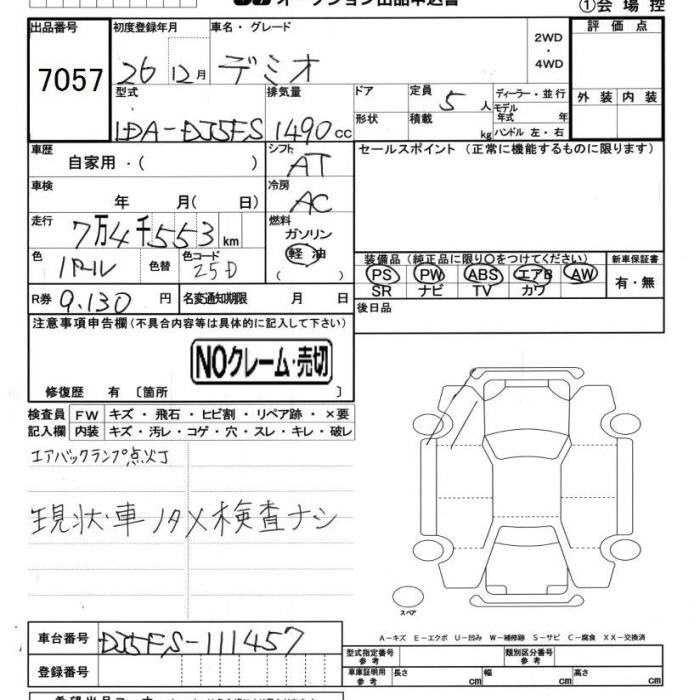 オークション出品申込書
①会 場 控
出品番号
7057
初度登録年月
26 12月
車名・グレード
デミオ
2WD
・
4WD
評 価 点
外 装 内 装
型式
LDA-DJ5FS
排気量
1490cc
ドア
形状
定員
5 人
積載
kg
ディーラー・並行
モデル
年式 年
ハンドル 左・右
車歴
自家用・( )
シフト
AT
セールスポイント (正常に機能するものに限ります)
車検
年 月( 日)
冷房
AC
走行
7万4千553km
燃料
ガソリン
軽 油
( )
色
パール
色替
色コード
25D
装備品 (純正品に限り○をつけてください)
新車保証書
PS PW ABS エアB AW
SR ナビ TV カワ
有・無
R券 9.130 円
名変通知期限 月 日
後日品
注意事項申告欄(不具合内容等は具体的に記入して下さい)
NOクレーム・売切
修復歴 有 〔箇所 〕
検査員
記入欄
FW キズ ・ 飛石 ・ ヒビ割 ・ リペア跡 ・ ×要
内装 キズ・汚レ・コゲ・穴・スレ・キレ・破レ
エアバックランプ点灯
現状車ノタメ検査ナシ
スペア
A-キズ E-エクボ U-凹み W-補修跡 S-サビ C-腐食 XX-交換済
車台番号
DJ5FS-111457
登録番号
型式指定番号
参 考
類別区分番号
参 考
車庫証明用
参 考
長さ cm
幅 cm
高さ cm